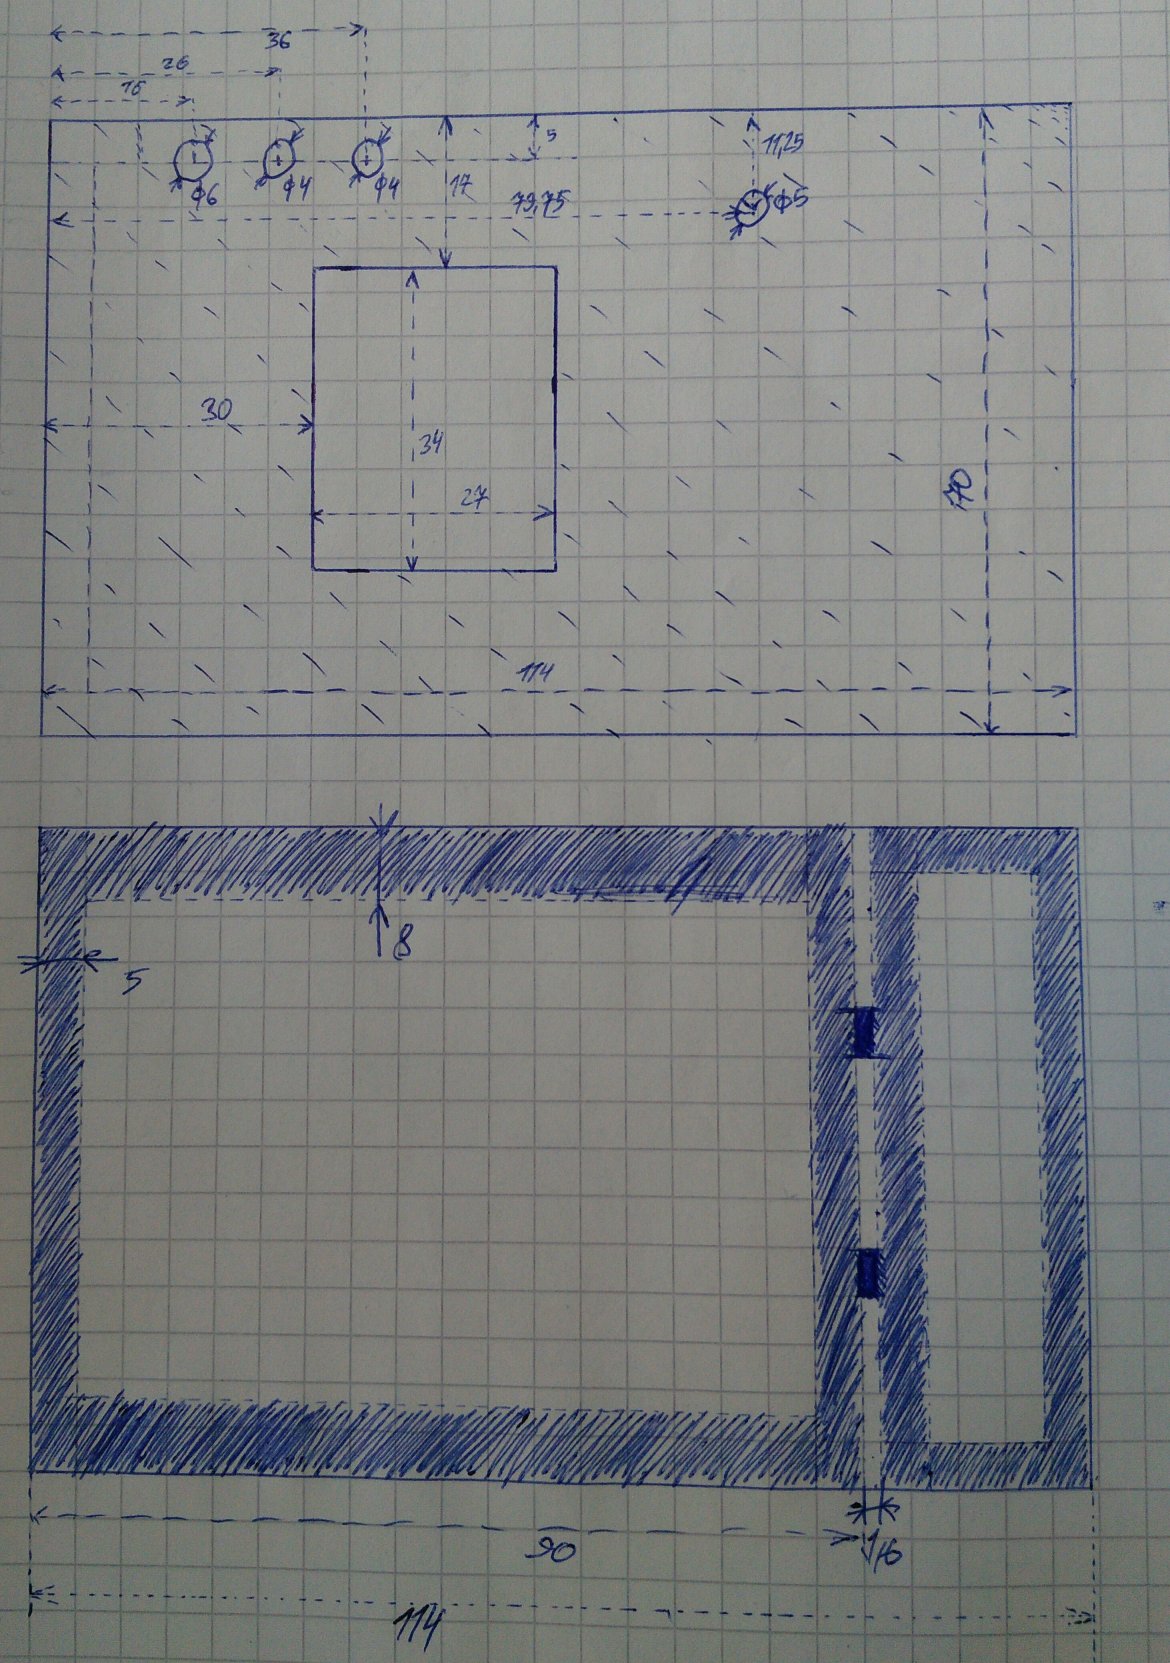 36
26
16
5
11,25
φ6
φ4
φ4
17
79,75
φ5
30
34
27
170
114
8
5
90
1,6
114